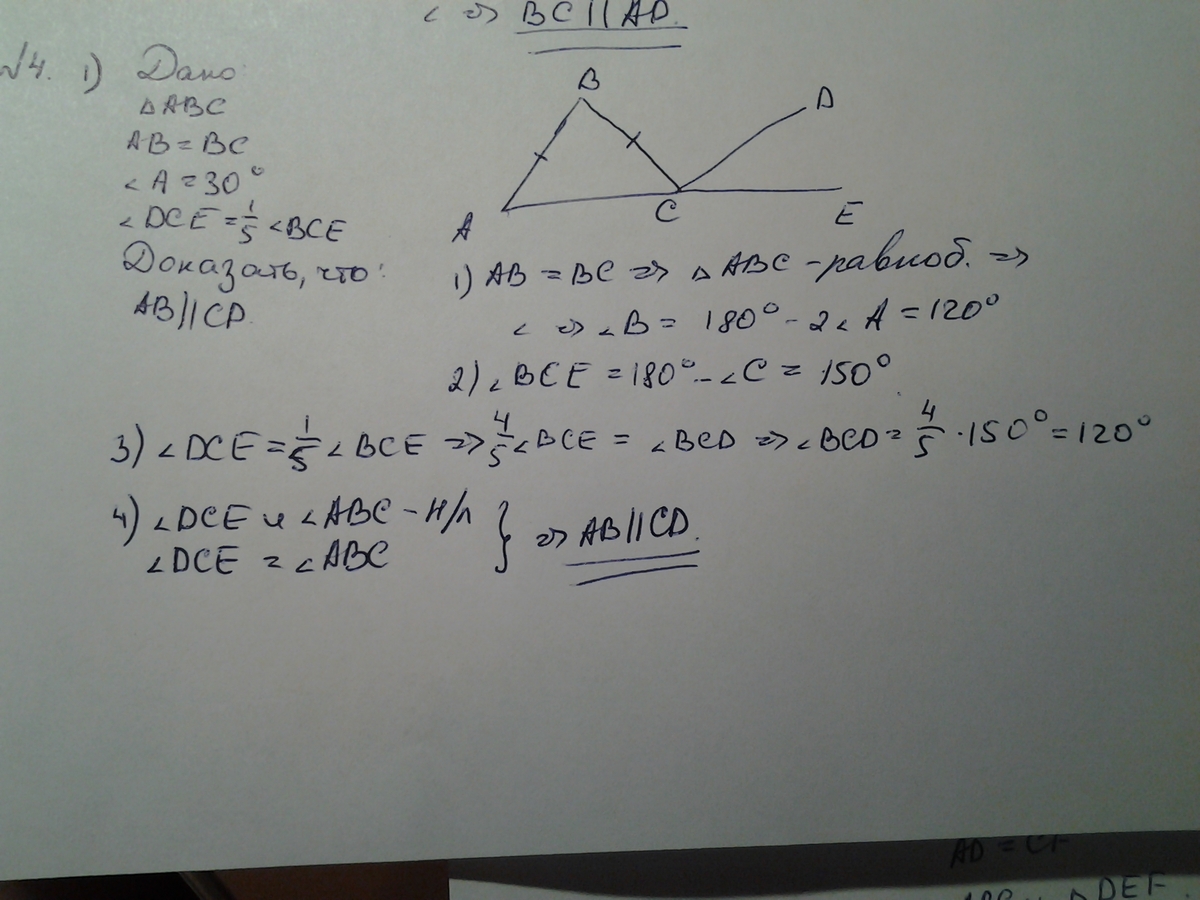 < => BC || AD.
№4. 1) Дано:
△ABC
AB = BC
∠A = 30°
∠DCE = 1/5 ∠BCE
Доказать, что:
AB || CD.
B
D
A
C
E
1) AB = BC => △ABC - равноб. =>
< => ∠B = 180° - 2∠A = 120°
2) ∠BCE = 180° - ∠C = 150°
3) ∠DCE = 1/5 ∠BCE => 4/5 ∠BCE = ∠BCD => ∠BCD = 4/5 · 150° = 120°
4) ∠DCE и ∠ABC - н/л } => AB || CD.
∠DCE = ∠ABC
AD = CF
△DEF.